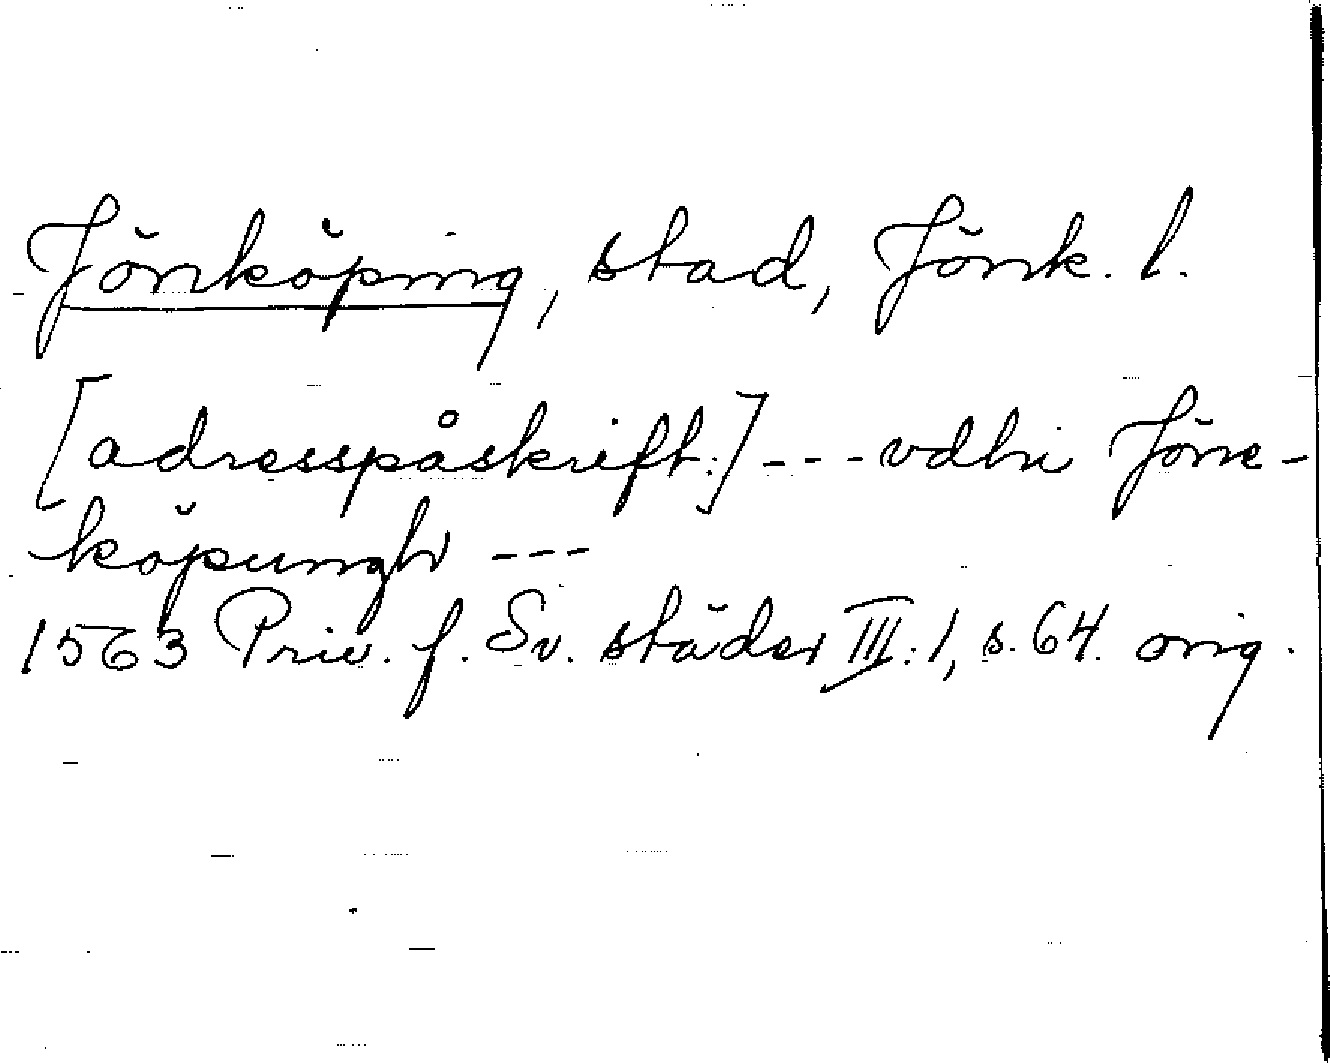 Jönköping, stad, Jönk. l.
[adresspåskrift:] --- vdhi Jöne-
köpungh ---
1563 Priv. f. Sv. städer III:1, s. 64. orig.